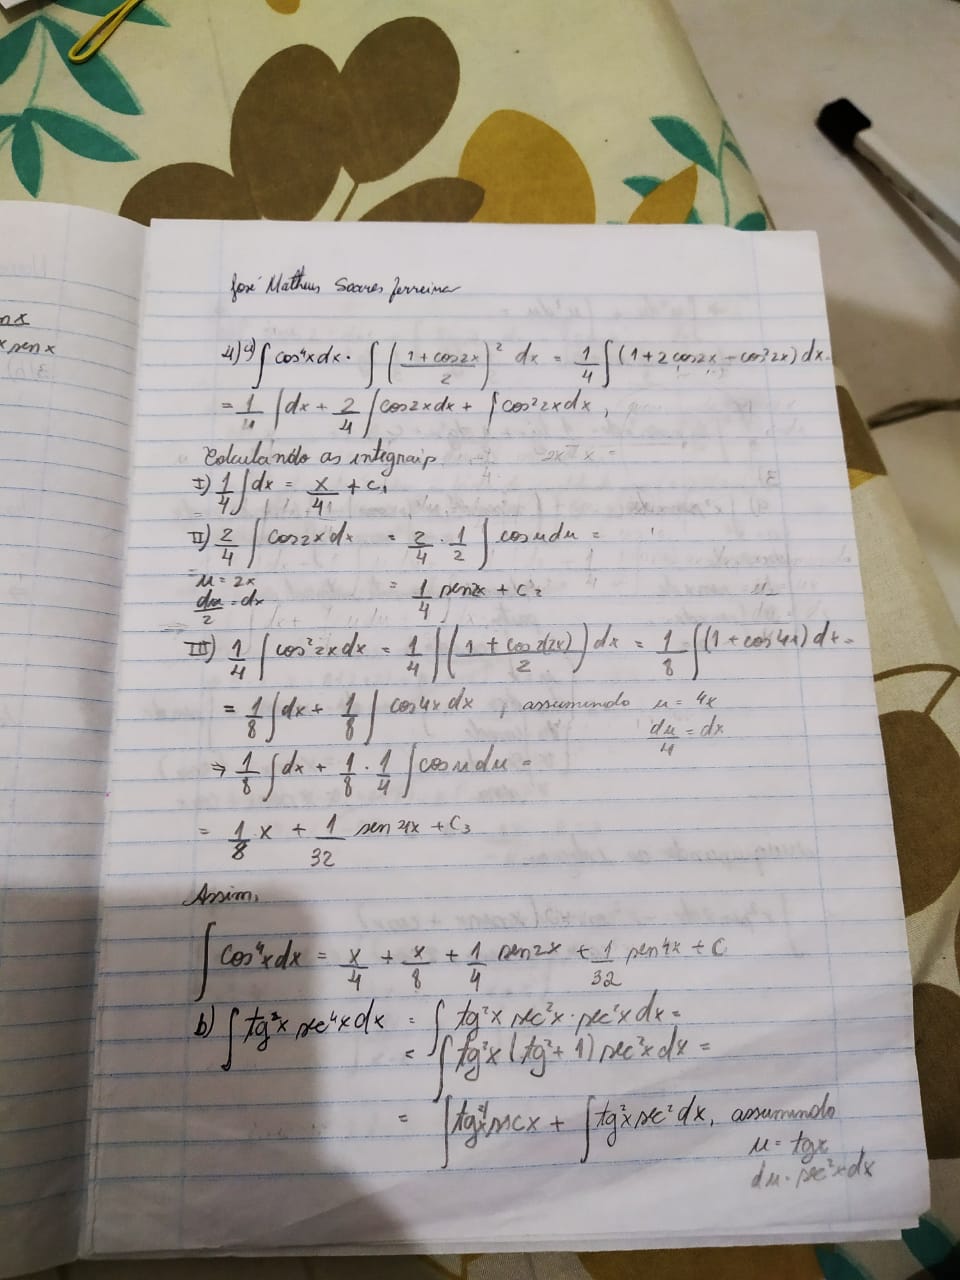 nx
x sen x
José Matheus Soares Ferreira
4) a) ∫ cos⁴x dx = ∫ (1+cos2x / 2)² dx = 1/4 ∫ (1+2cos2x + cos²2x) dx =
= 1/4 ∫ dx + 2/4 ∫ cos2x dx + ∫ cos²2x dx,
Calculando as integrais
I) 1/4 ∫ dx = x/4 + C₁
II) 2/4 ∫ cos2x dx = 2/4 · 1/2 ∫ cos u du =
u = 2x
du/2 = dx
= 1/4 sen2x + C₂
III) 1/4 ∫ cos²2x dx = 1/4 ∫ (1 + cos2(2x) / 2) dx = 1/8 ∫ (1 + cos4x) dx =
= 1/8 ∫ dx + 1/8 ∫ cos4x dx, assumindo u = 4x
du/4 = dx
⇒ 1/8 ∫ dx + 1/8 · 1/4 ∫ cos u du =
= 1/8 x + 1/32 sen4x + C₃
Assim,
∫ cos⁴x dx = x/4 + x/8 + 1/4 sen2x + 1/32 sen4x + C
b) ∫ tg²x sec⁴x dx = ∫ tg²x sec²x · sec²x dx =
= ∫ tg²x (tg²+1) sec²x dx =
= ∫ tg⁴x secx + ∫ tg²x sec² dx, assumindo
u = tgx
du = sec²x dx